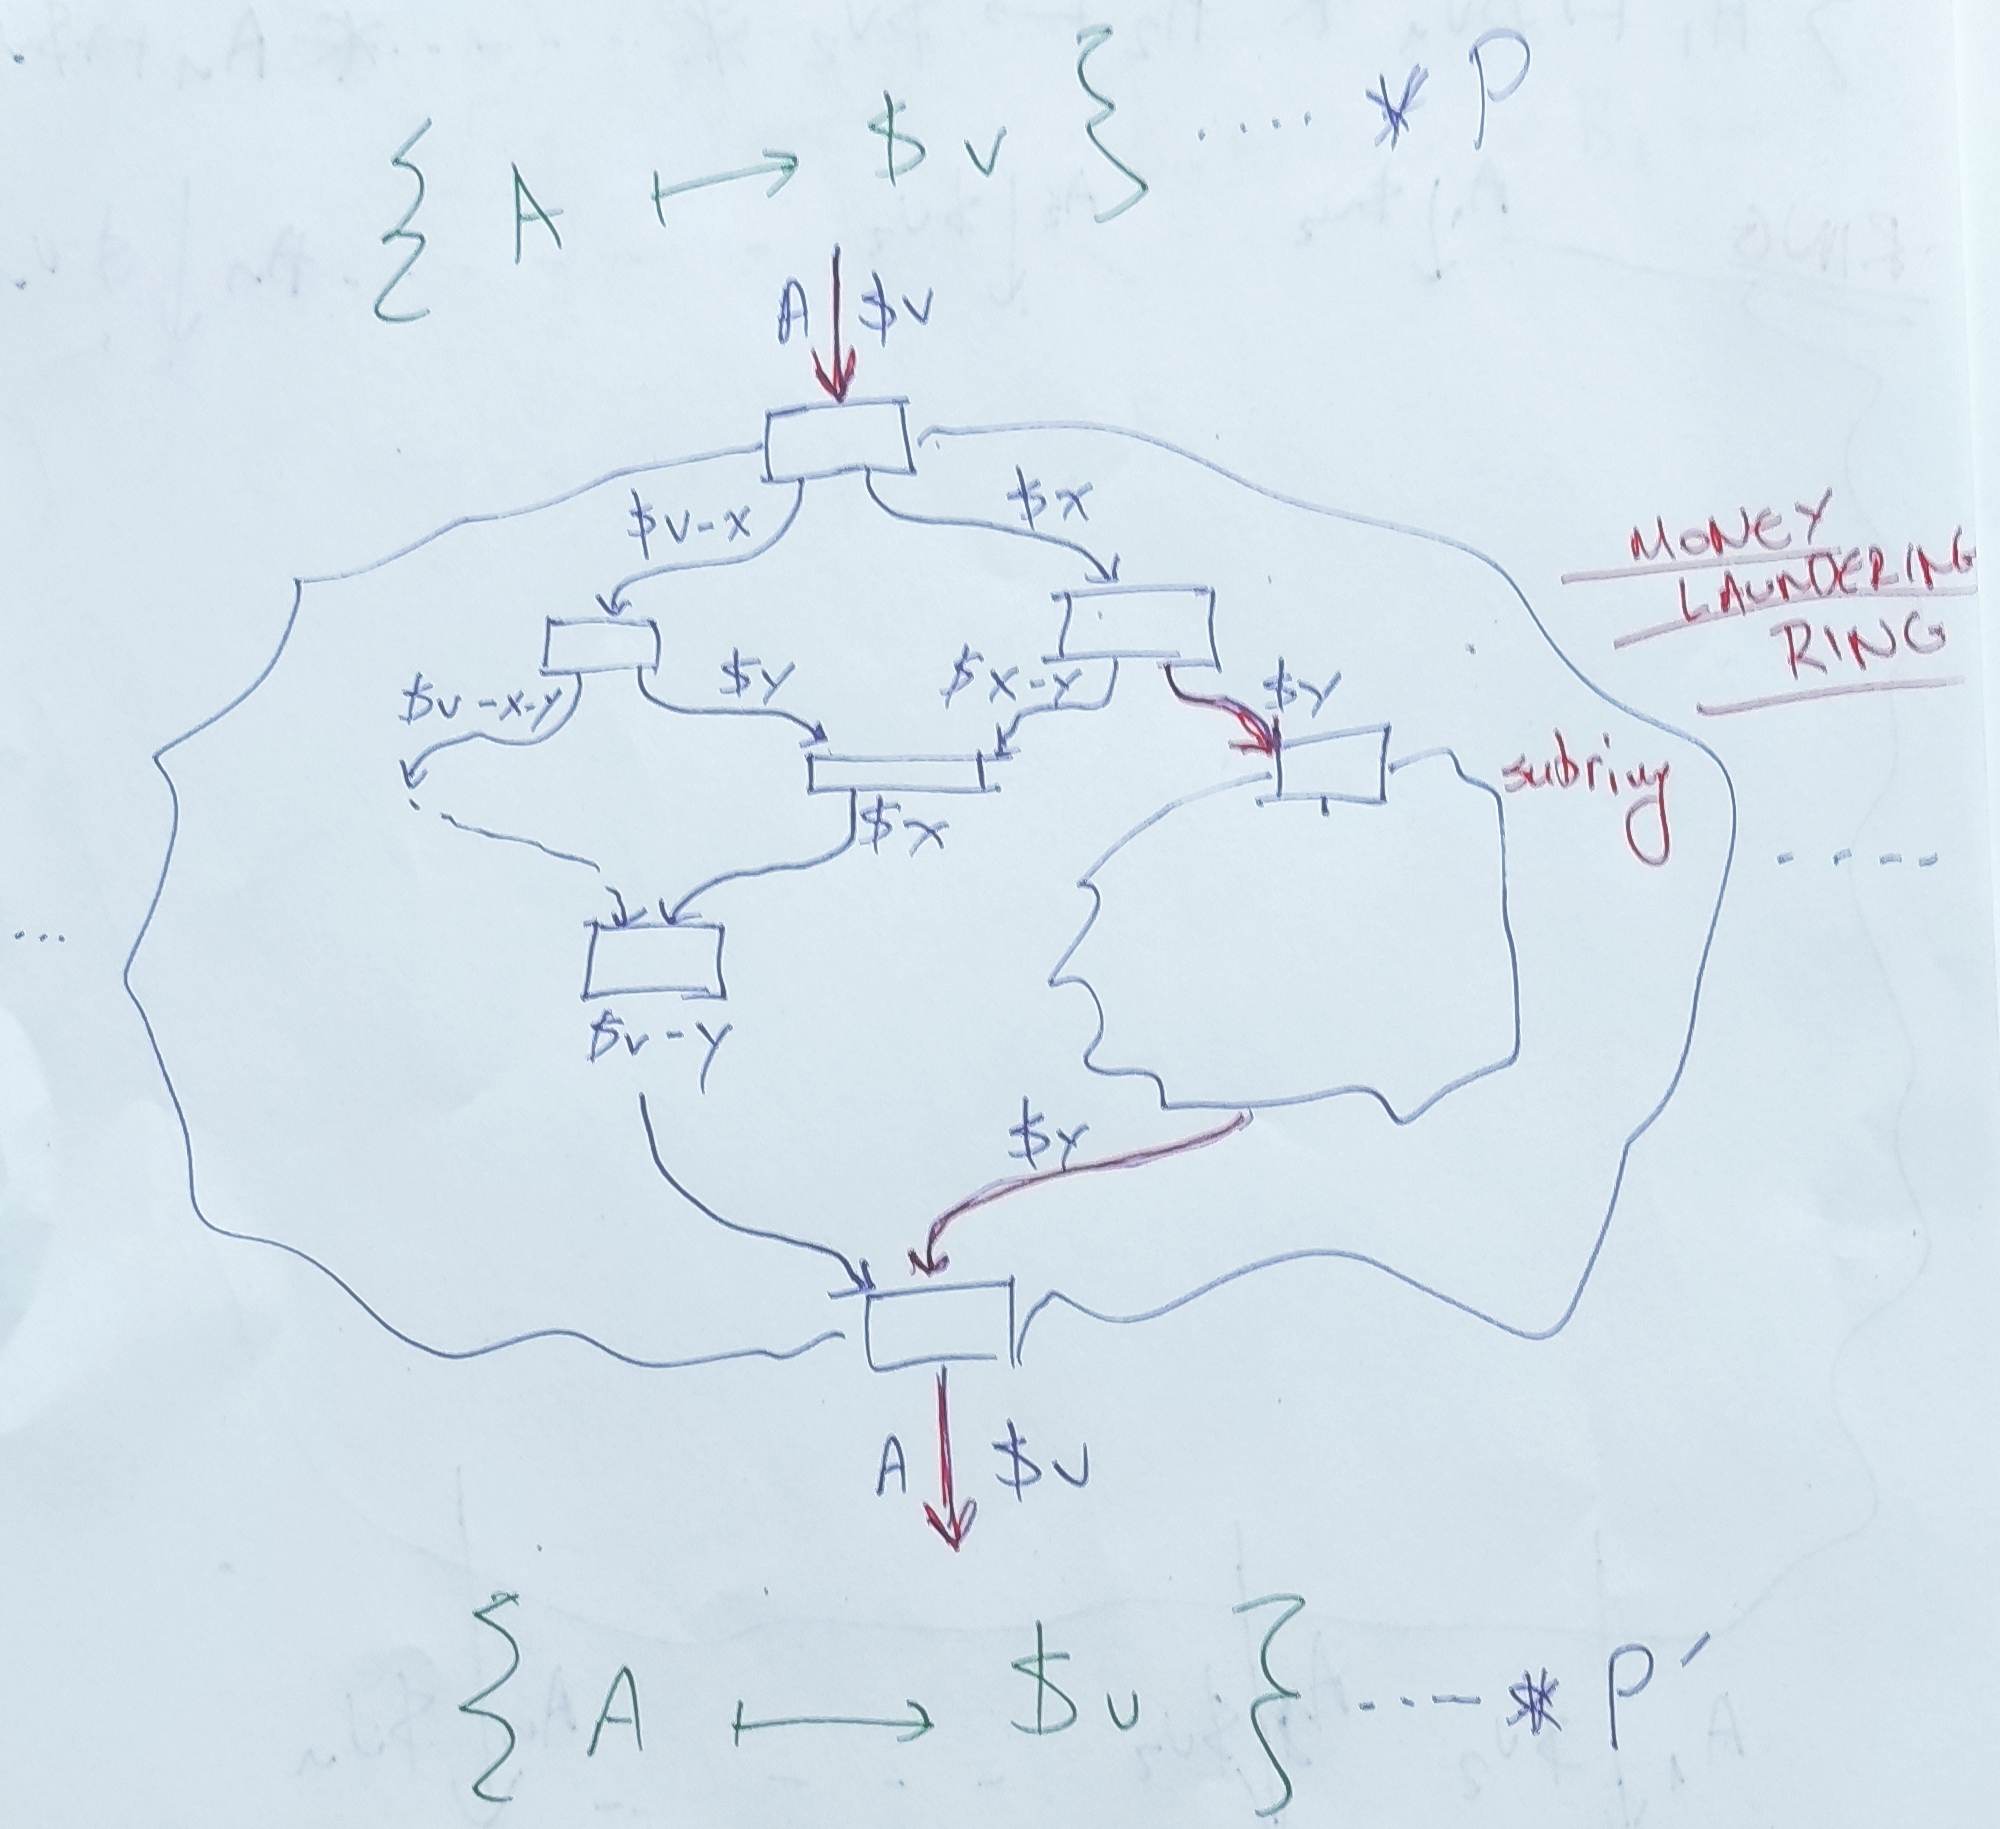 { A ↦ $ v } .... * P
A $v
$v-x $x
MONEY
LAUNDERING
RING
$v-x-y $y $x-y $y
subring
$x
----
...
$v-y
$y
A $v
{ A ↦ $ v } ---- * P′